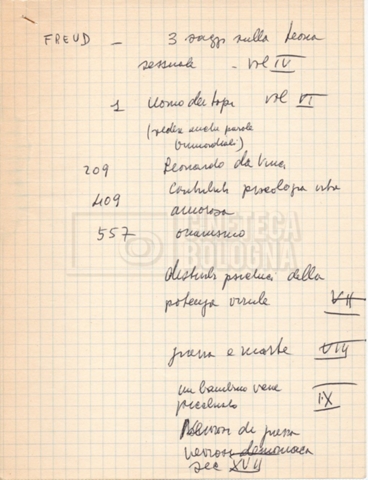 FREUD – 3 saggi sulla teoria
sessuale – vol IV
1 Uomo dei topi vol VI
(vedere anche parole
primordiali)
209 Leonardo da Vinci
409 Contributi psicologia vita
amorosa
557 onanismo
CINETECA
BOLOGNA
disturbi psichici della
potenza virile VII
guerra e morte VIII
un bambino viene
picchiato IX
di guerra
nevrosi demoniaca
sec XVII